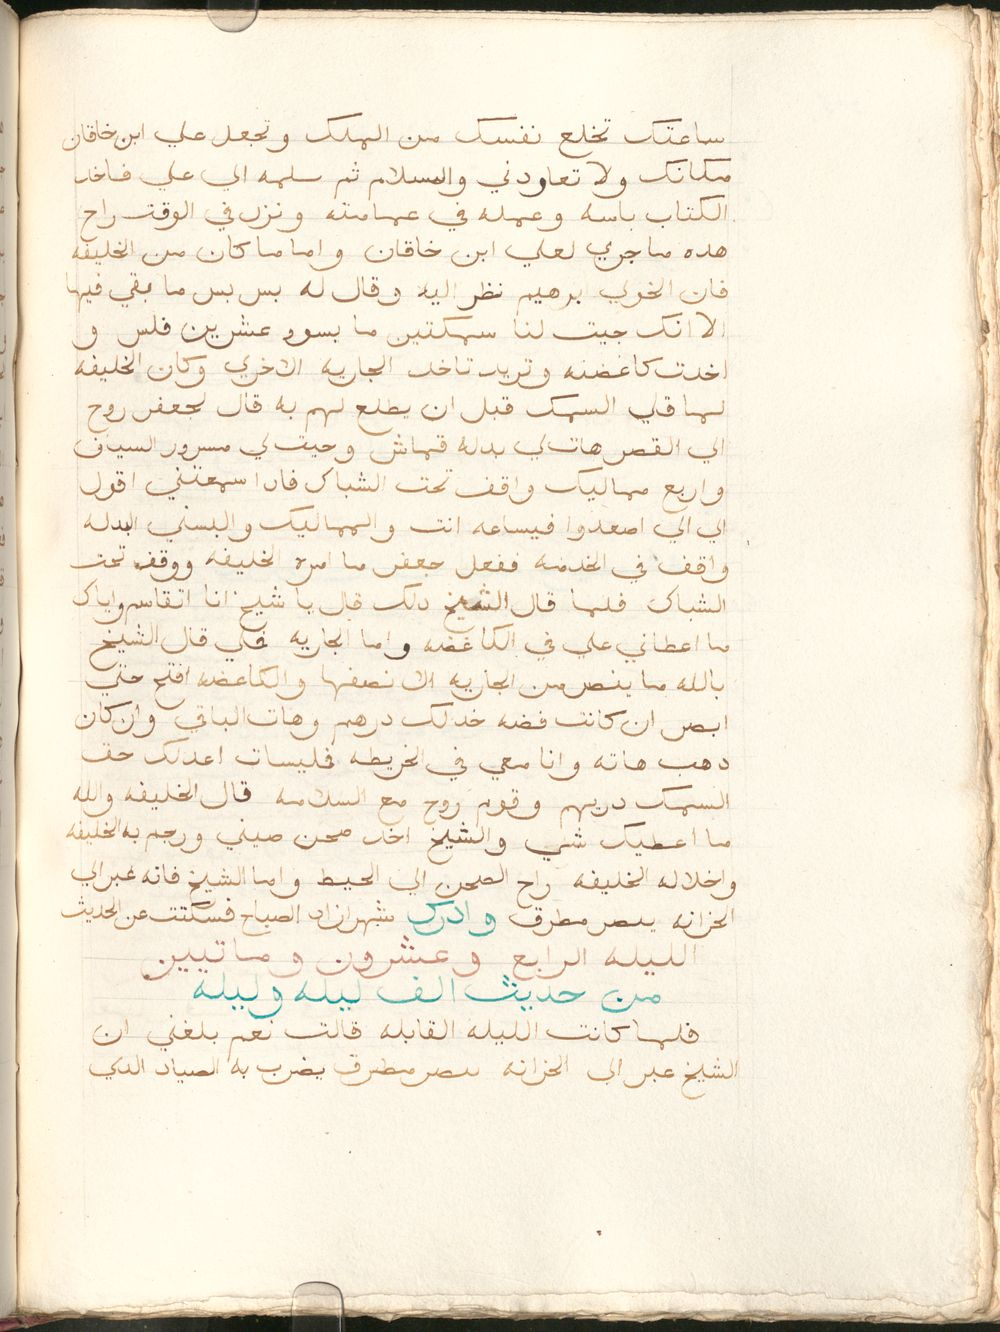 ساعتك تخلع نفسك من الملك وتجعل علي ابن خاقان
مكانك ولا تعاودني والسلام ثم سلمه الي علي فاخد
الكتاب باسه وعمله في عمامته ونزل في الوقت راح
هده ما جري لعلي ابن خاقان واما ما كان من الخليفه
فان الخولي ابرهيم نظر اليه وقال له بس بس ما بقي فيها
الا انك جيت لنا سمكتين ما يسوو عشرين فلس و
اخدت كاغضه وتريد تاخد الجاريه الاخري وكان الخليفه
لما قلي السمك قبل ان يطلع لهم به قال لجعفر روح
الي القصر هات لي بدلة قماش وجيت لي مسرور السياف
واربع مماليك واقف تحت الشباك فادا سمعتني اقول
الي الي اصعدوا فيساعه انت والمماليك والبسني البدله
واقف في الخدمه ففعل جعفر ما امره الخليفه ووقف تحت
الشباك فلما قال الشيخ دلك قال يا شيخ انا اتقاسم واياك
ما اعطاني علي في الكاغضه واما الجاريه فلي قال الشيخ
بالله ما ينصر من الجاريه الا نصفها والكاغضه افتح حتي
ابصر ان كانت فضه خد لك درهم وهات الباقي وان كان
دهب هاته وانا معي في الخريطه فليسات اعد لك حق
السمك دريهم وقوم روح مع السلامه قال الخليفه والله
ما اعطيك شي والشيخ اخد صحن صيني ورجم به الخليفه
واخلا له الخليفه راح الصحن الي الحيط واما الشيخ فانه عبر الي
الخزانه يبصر مطرق وادرك شهرازاد الصباح فسكتت عن الحديث
الليله الرابع وعشرون وماتيين
من حديث الف ليله وليله
فلما كانت الليله القابله قالت نعم بلغني ان
الشيخ عبر الي الخزانه يبصر مطرق يضرب به الصياد الدي